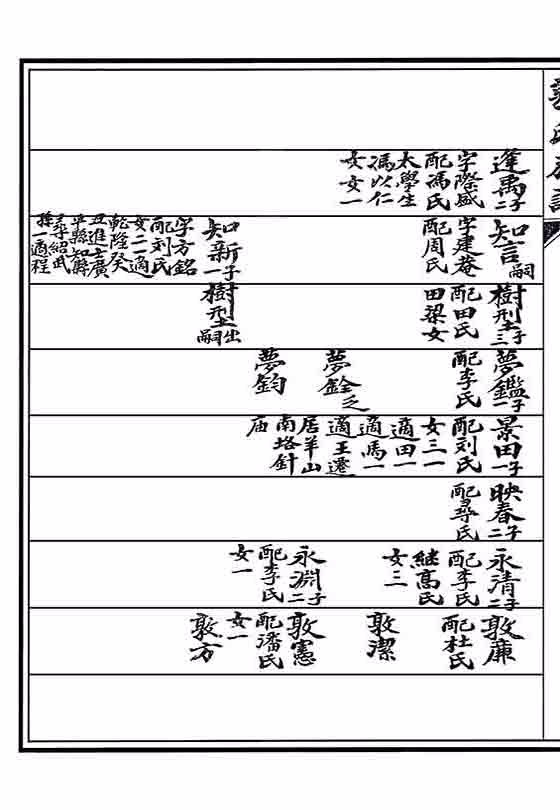 逢禹二子
字際盛
配馮氏
太學生
馮以仁
女女一
知言嗣
字建菴
配周氏
知新一子
字方銘
配刘氏
女二一適
乾隆癸
丑進士廣
平縣知縣
孫一適程
樹型三子
配田氏
田梁女
樹型出嗣
夢鑑一子
配李氏
夢銓乏
夢鈞
景田一子
配刘氏
女三一
適田一
適馬一
適王遷
居羊山
南塔針
庙
映春二子
配尋氏
永清二子
配李氏
継髙氏
女三
永淵二子
配李氏
女一
敦廉
配杜氏
敦潔
敦憲
配潘氏
女一
敦方